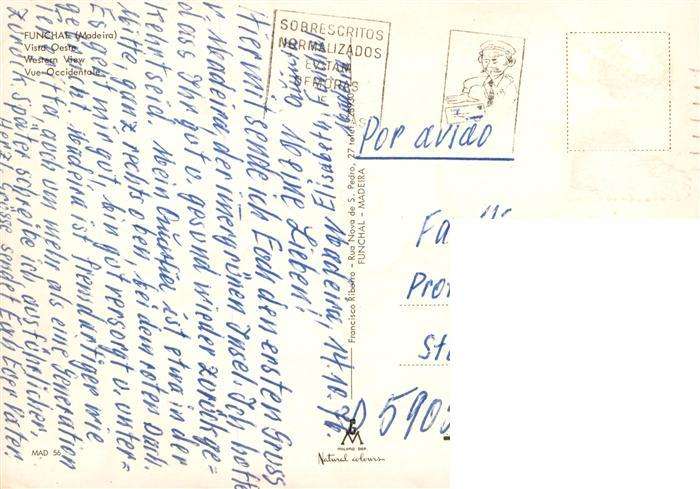 FUNCHAL (Madeira)
Vista Oeste
Western View
Vue Occidentale
SOBRESCRITOS
NORMALIZADOS
EVITAM
DEMORAS
Por avião
Madeira, 14.10.78.
Meine Lieben!
Hiermit sende ich Euch den ersten Gruss
v. Madeira der immergrünen Insel. Ich hoffe
dass Ihr gut u. gesund wieder zurückge-
kehrt seid. Mein Quartier ist etwa in der
Mitte ganz rechts oben, bei dem roten Dach.
Es geht mir gut, bin gut versorgt u. unter-
gebracht. Madeira ist fremdartiger wie
auch um mehr als eine Generation
zurück. Später schreibe ich ausführlicher.
Herzl. Grüsse sendet Euch Euer Vater.
Elisabeth
Francisco Ribeiro — Rua Nova de S. Pedro, 27
FUNCHAL – MADEIRA
Fa
Pro
St
D 5902
MAD 56
MILANO DEP.
Natural colours